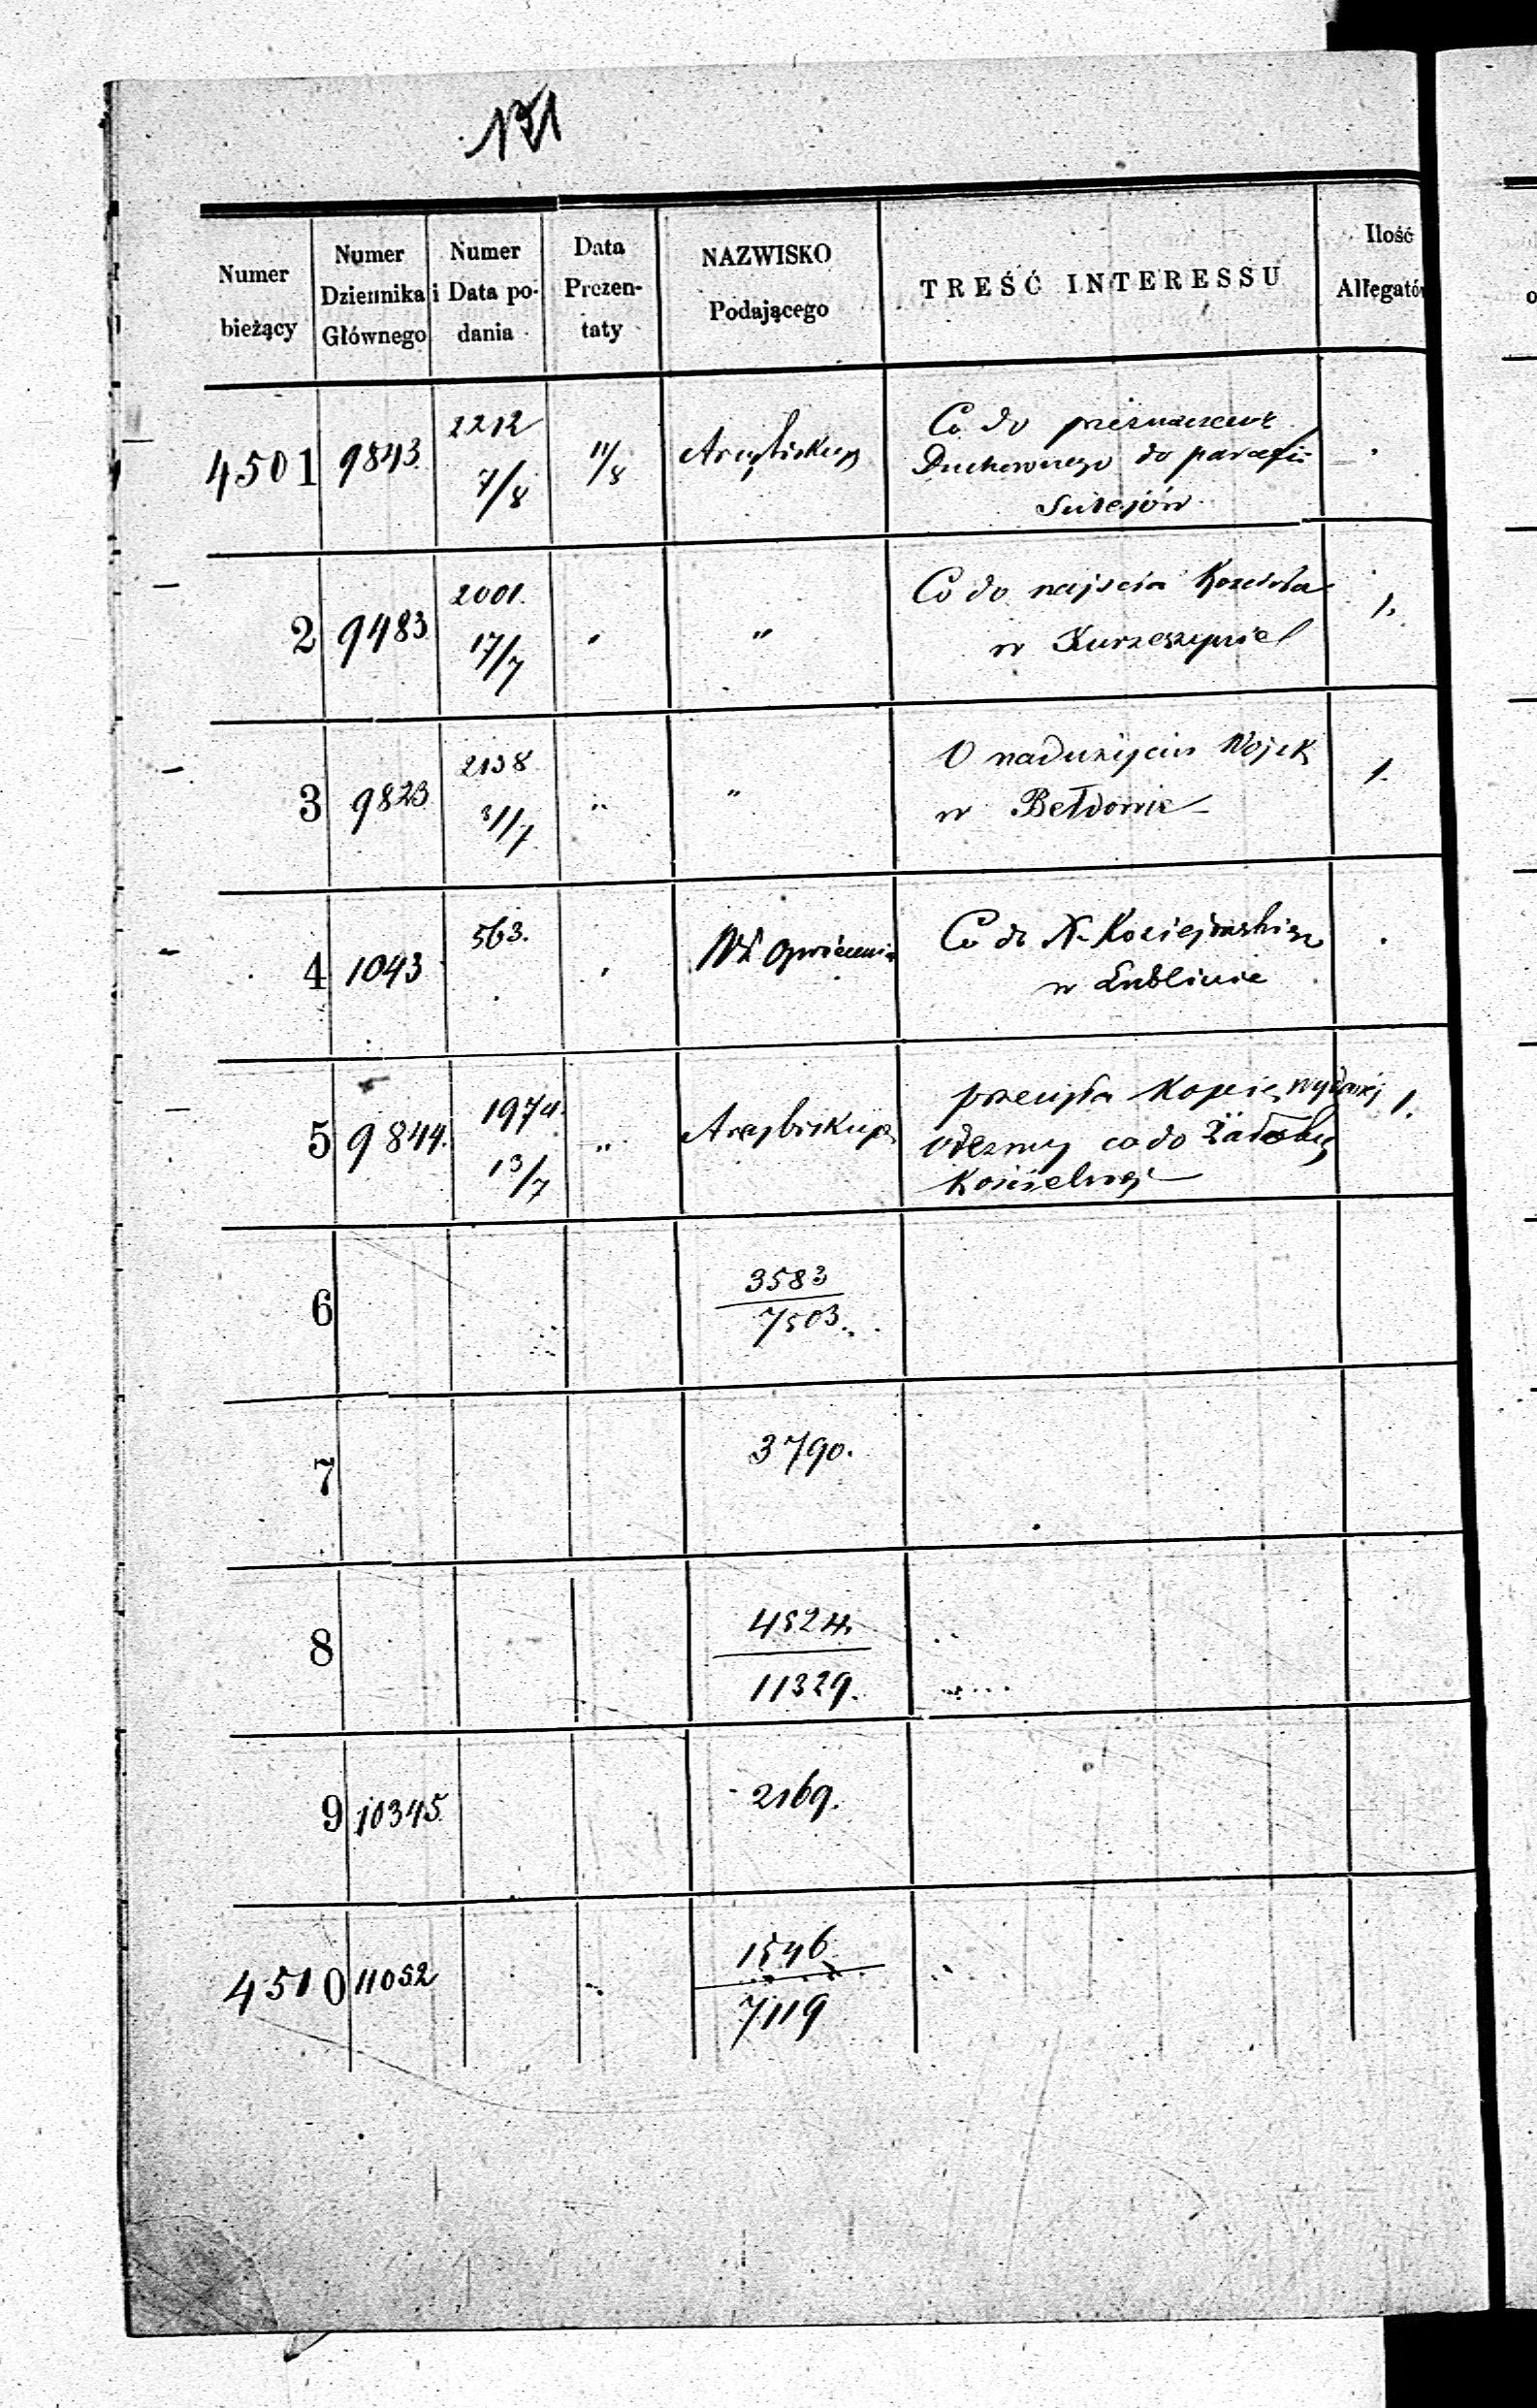 Numer bieżący
Numer Dziennika Głównego
Numer i Data podania
Data Prezentaty
NAZWISKO Podającego
TREŚĆ INTERESSU
Ilość Allegatów
4501 9843 2212 7/8 11/8 Arcybiskup Co do przeznaczenia
Duchownego do parafii
Sulejów
2 9483 2001. 17/7 " " Co do najścia Kościoła 1.
w Kurzeszynie
3 9823 2138 31/7 " " O nadużyciu Wojsk 1.
w Bełdowie
4 1043 563. " Oświecenia Co do N.
w Lublinie
5 9844. 1974. 13/7 " Arcybiskup przesyła Kopię wydanej 1.
odezwy co do żałoby
Kościelnej
6 3583
7503.
7 3790.
8 4524.
11329.
9 10345 2169.
4510 11052 1546
7119